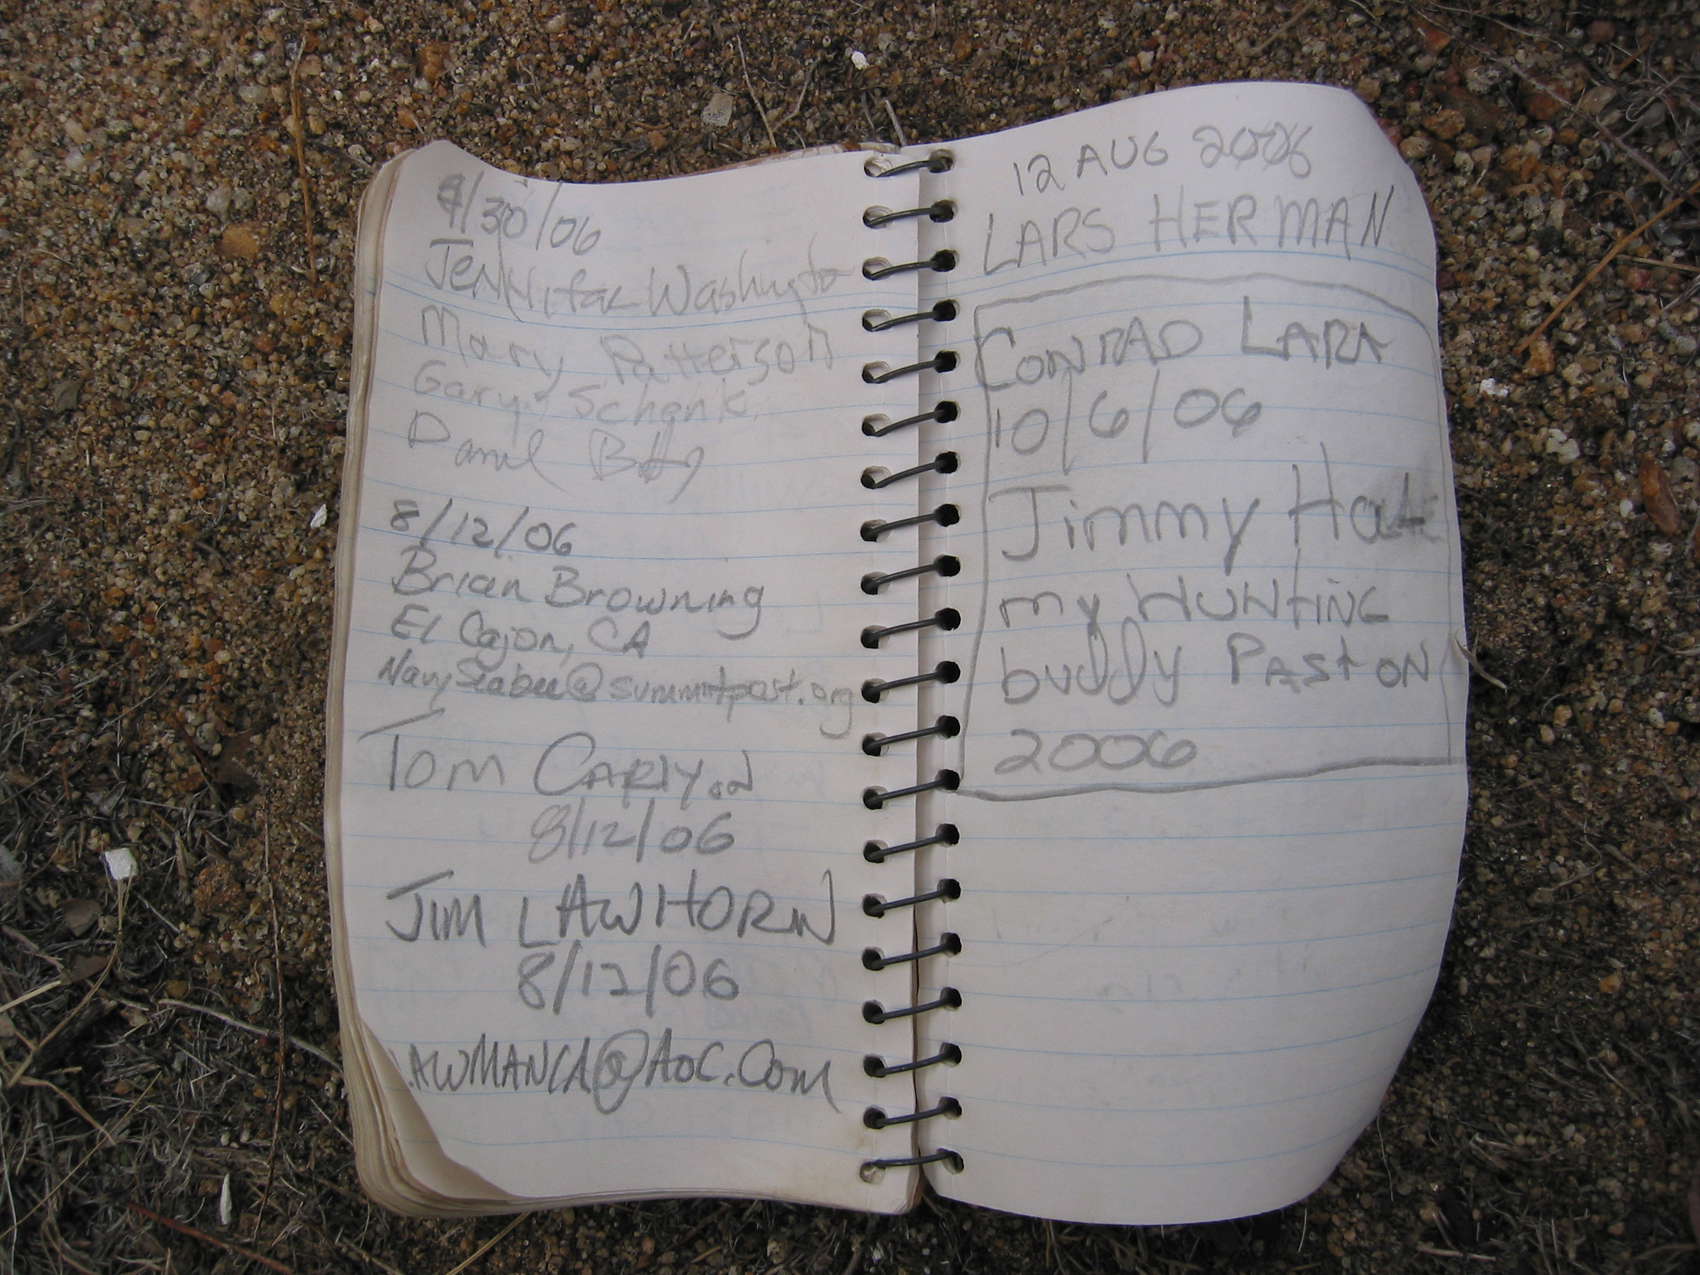 4/30/06
Jennifer Washington
Mary Patterson
Gary Schenk
8/12/06
Brian Browning
El Cajon, CA
NavySeabee@summitpost.org
Tom Carlyon
8/12/06
JIM LAWHORN
8/12/06
LAWMANCA@AOL.COM
12 AUG 2006
LARS HERMAN
CONRAD LARA
10/6/06
Jimmy
my HUNTING
buddy PAST ON
2006